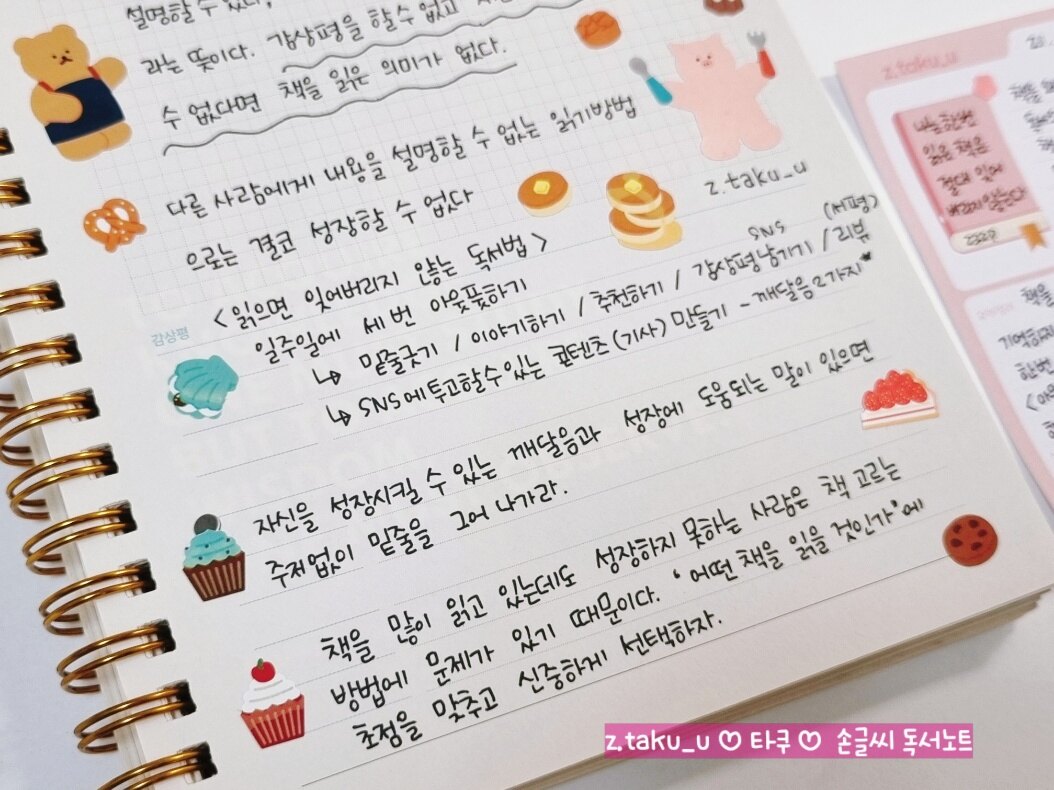 설명할 수 있다,
라는 뜻이다. 감상평을 할 수 없고
수 없다면 책을 읽은 의미가 없다.
다른 사람에게 내용을 설명할 수 없는 읽기방법
으로는 결코 성장할 수 없다
z.taku_u
<읽으면 잊어버리지 않는 독서법>
감상평
일주일에 세 번 아웃풋하기
SNS (서평)
↳ 밑줄긋기 / 이야기하기 / 추천하기 / 감상평남기기 / 리뷰
↳ SNS에 투고할 수 있는 콘텐츠(기사) 만들기 - 깨달음 2가지*
자신을 성장시킬 수 있는 깨달음과 성장에 도움되는 말이 있으면
주저없이 밑줄을 그어 나가라.
책을 많이 읽고 있는데도 성장하지 못하는 사람은 책 고르는
방법에 문제가 있기 때문이다. '어떤 책을 읽을 것인가'에
초점을 맞추고 신중하게 선택하자.
z.taku_u
나는 한번
읽은 책은
절대 잊어
버리지 않는다
책을
기억하
한번
z.taku_u ♡ 타쿠 ♡ 손글씨 독서노트